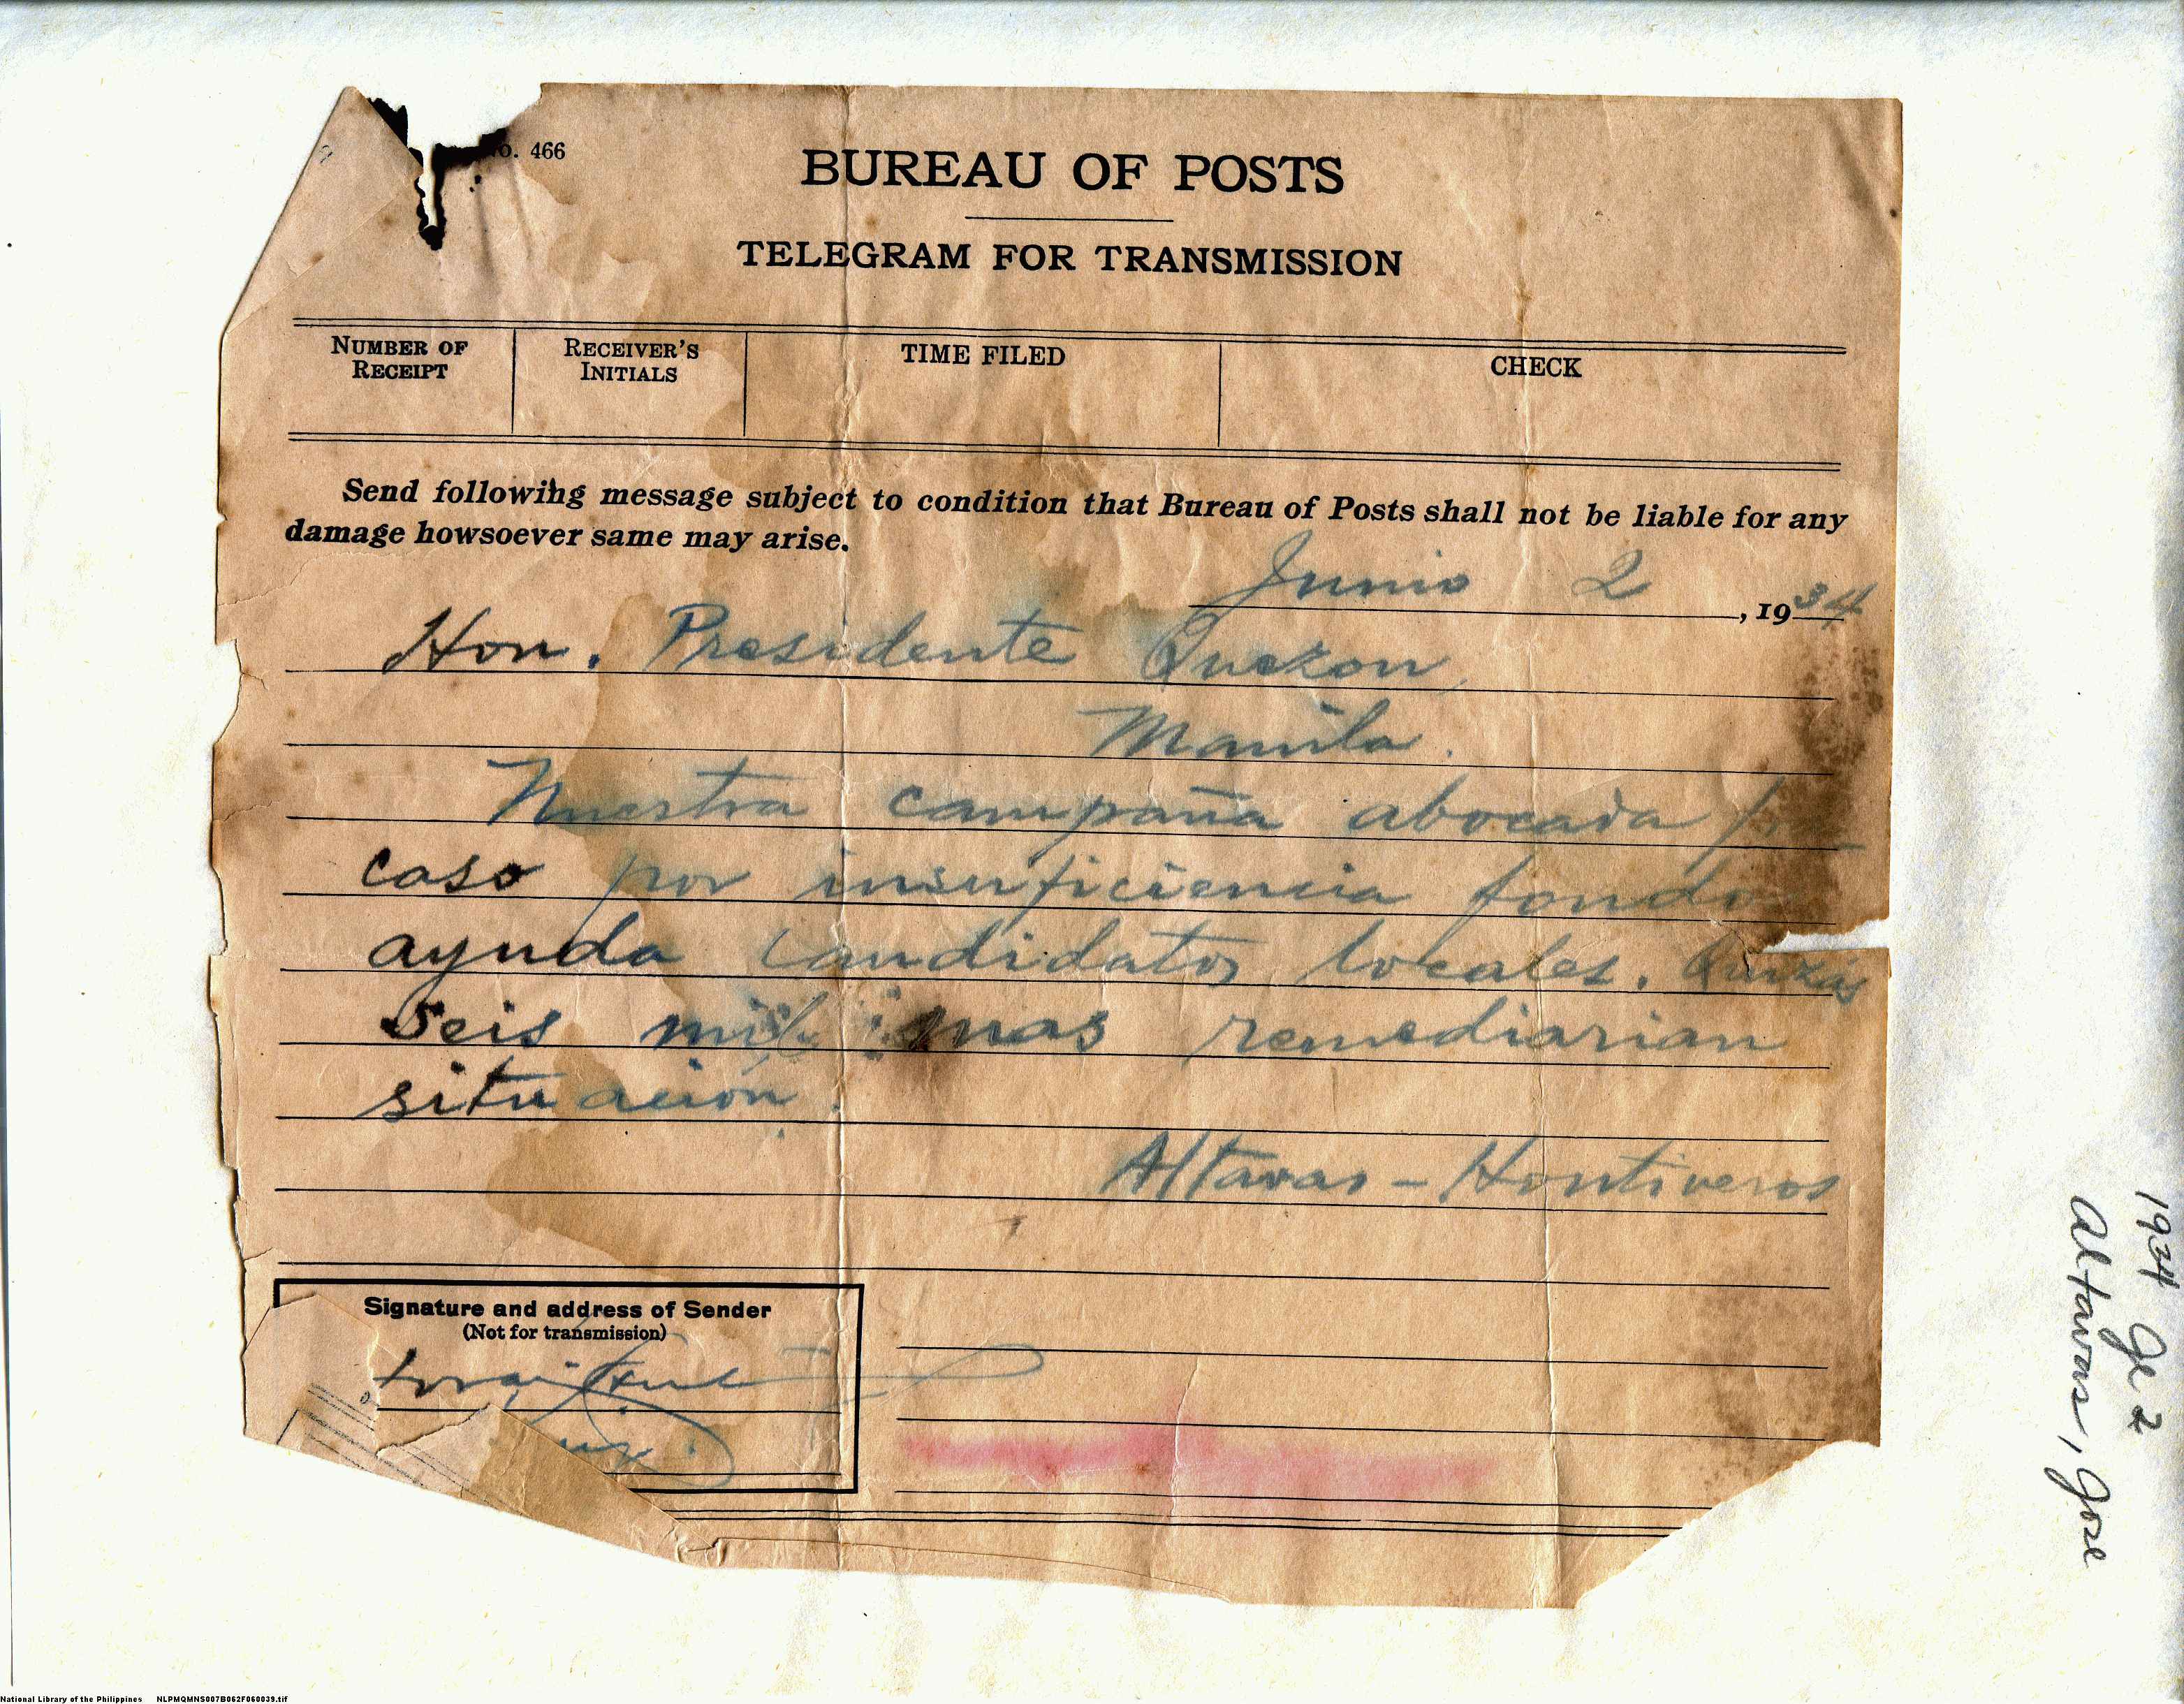 o. 466
BUREAU OF POSTS
TELEGRAM FOR TRANSMISSION
NUMBER OF RECEIPT
RECEIVER'S INITIALS
TIME FILED
CHECK
Send following message subject to condition that Bureau of Posts shall not be liable for any
damage howsoever same may arise.
Junio 2, 1934
Hon. Presidente Quezon,
Manila.
Nuestra campaña abocada fra-
caso por insuficiencia fondo
ayuda candidatos locales. Quizás
seis mil mas remediarian
situación.
Altavas - Hontiveros
Signature and address of Sender
(Not for transmission)
1934 Je 2
Altavas, Jose
National Library of the Philippines NLPMQMNS007B062F060039.tif